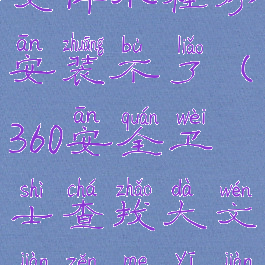 ān zhuāng bù liǎo
安装不了（
ān quán wèi
360安全卫
shì chá zhǎo dà wén
士查找大文
jiàn zěn me yī jiàn